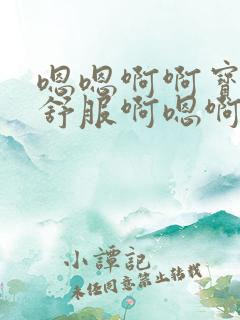 嗯嗯啊啊宝
舒服啊嗯啊
小谭记
未经同意禁止转载